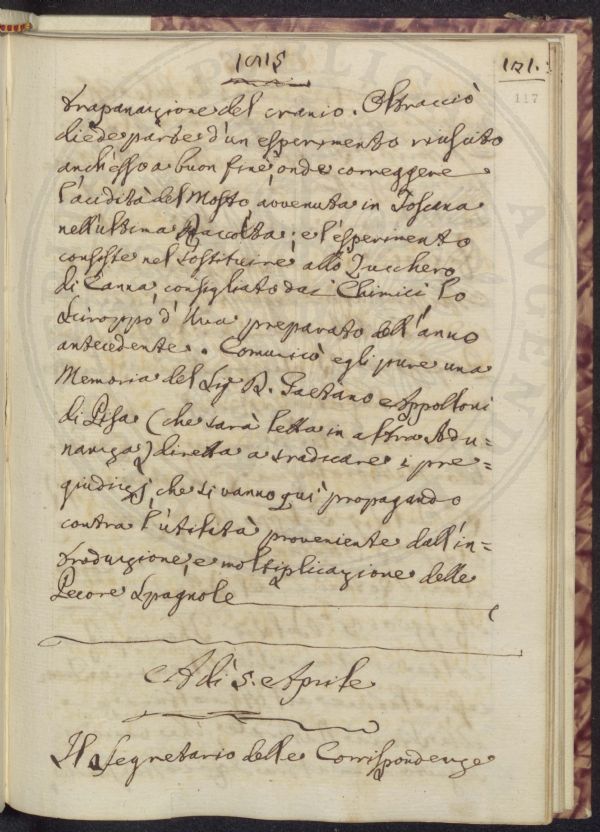 1815
121.
117
trapanazione del cranio. Oltracciò
diede parte d'un esperimento riuscito
anch'esso a buon fine onde correggere
l'acidità del Mosto avvenuta in Toscana
nell'ultima Raccolta; e l'esperimento
consiste nel sostituire allo Zucchero
di Canna consigliato dai Chimici lo
Sciroppo d'Uva preparato dell'anno
antecedente. Comunicò egli pure una
Memoria del Sig. D. Gaetano Appolloni
di Pisa (che sarà letta in altra Adu=
nanza) diretta a sradicare i pre=
giudizj, che si vanno quì propagando
contra l'utilità proveniente dall'in=
troduzione, e moltiplicazione delle
Pecore Spagnole
Adì 5. Aprile
Il Segretario delle Corrispondenze